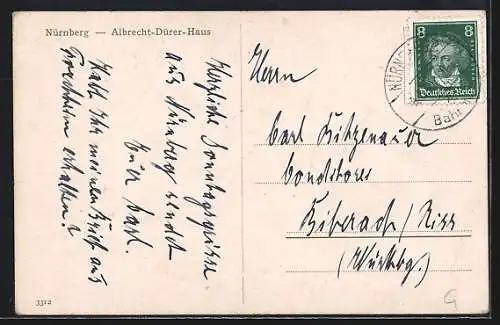 Nürnberg — Albrecht-Dürer-Haus
Herzliche Sonntagsgrüsse
aus Nürnberg sendet
Euer Carl.
Habt Ihr meinen Brief aus
erhalten?
3312
8 8
Deutsches Reich
NÜRN
Bahn
Herrn
Carl
Conditorei
Biberach/Riss
(Württbg.)